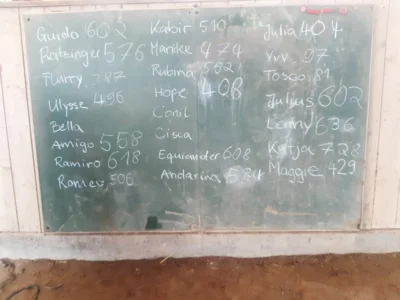 Guido 602
Ratzinger 576
Flurry 387
Ulysse 496
Bella
Amigo 558
Ramiro 618
Romeo 506
Kabir 510
Marike 474
Rubina 552
Hope 408
Conil
Cisca
Equiounder 608
Andarina 584
Julia 404
97
Tosca 81
Julius 602
Lenny 636
Katja 728
Maggie 429